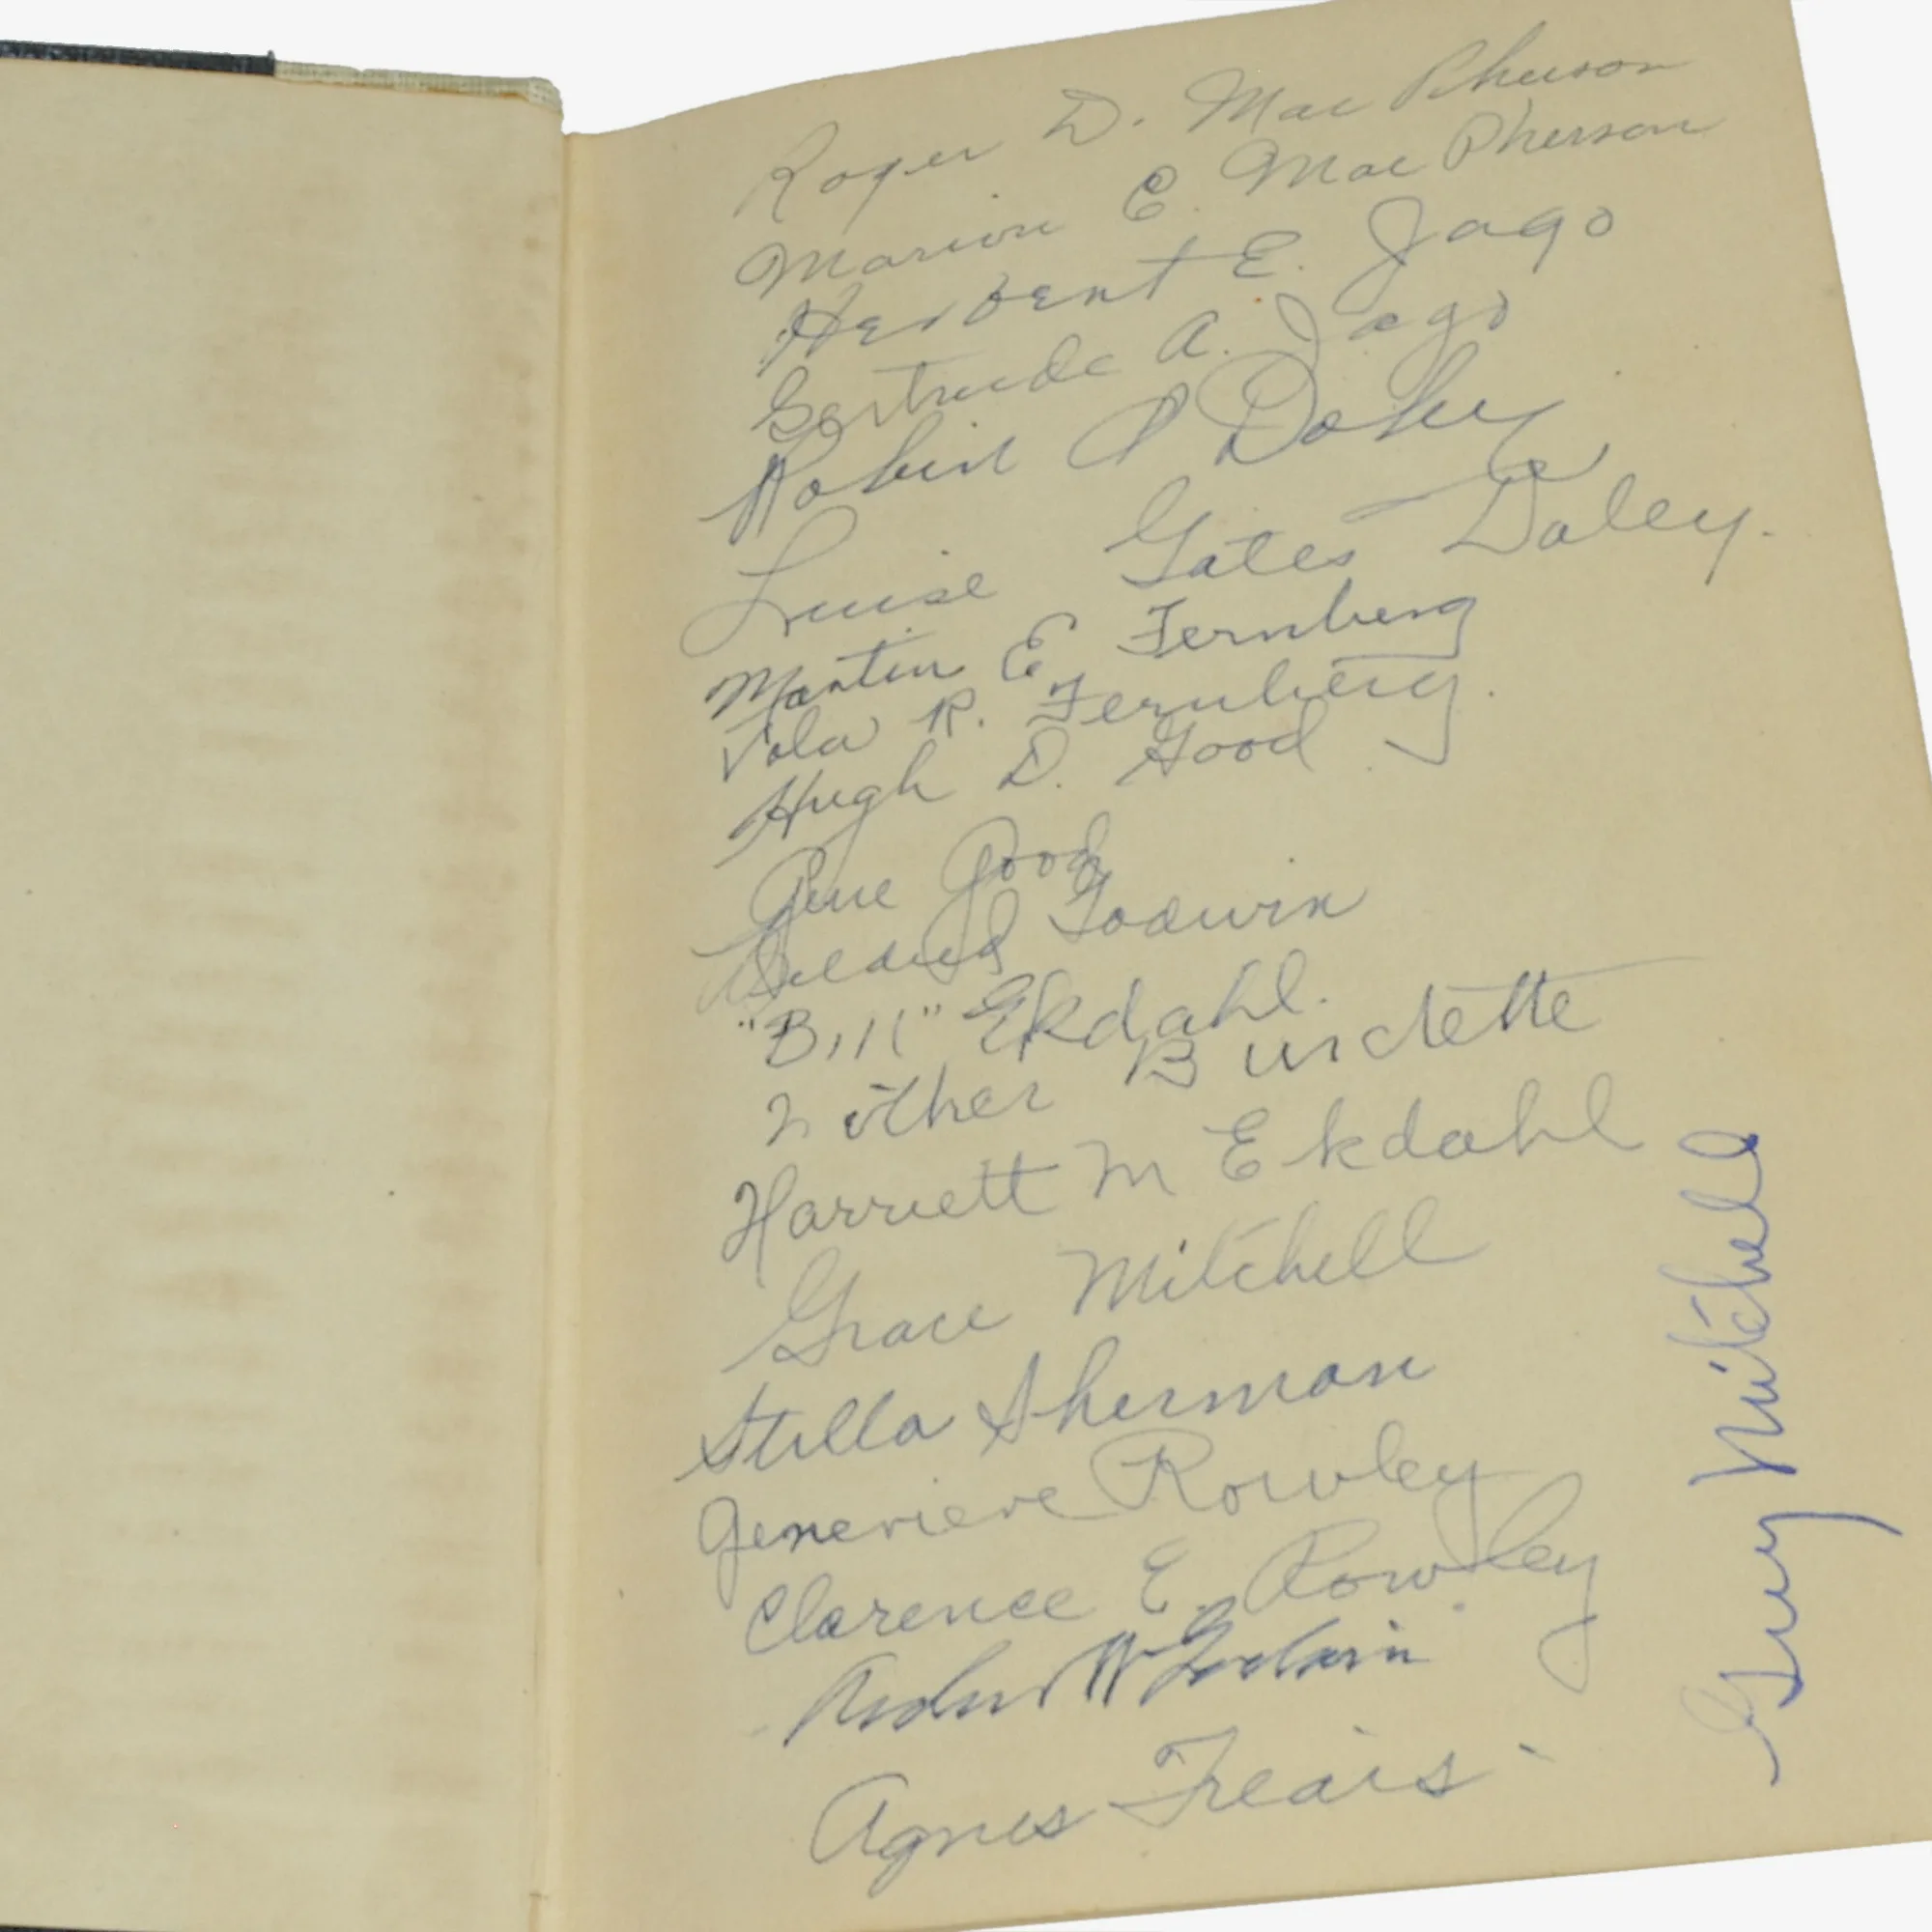 Roger D. Mac Pherson
Marion E. Mac Pherson
Herbert E. Jago
Gertrude A. Jago
Robin P Daley
Luise Gates Daley.
Martin E Fernberg
Vola R. Fernberg.
Hugh D. Good
Gene Good
Mildred Godwin
"Bill" Ekdahl.
Luther Burdette
Harriett M Ekdahl
Grace Mitchell
Stella Sherman
Genevieve Rowley
Clarence E. Rowley
W Godwin
Agnes Frears
Guy Mitchell